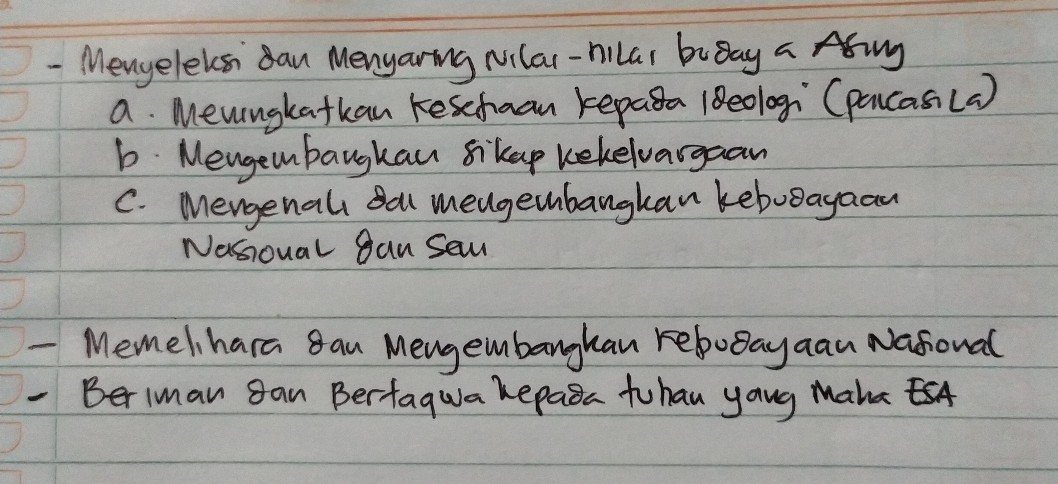 - Menyeleksi dan Menyaring Nilai-nilai budaya Asing
a. Meningkatkan kesetiaan kepada Ideologi (pancasila)
b. Mengembangkan sikap kekeluargaan
c. Mengenali dan mengembangkan kebudayaan
Nasional dan seni
- Memelihara dan Mengembangkan kebudayaan Nasional
- Beriman dan Bertaqwa kepada tuhan yang Maha ESA